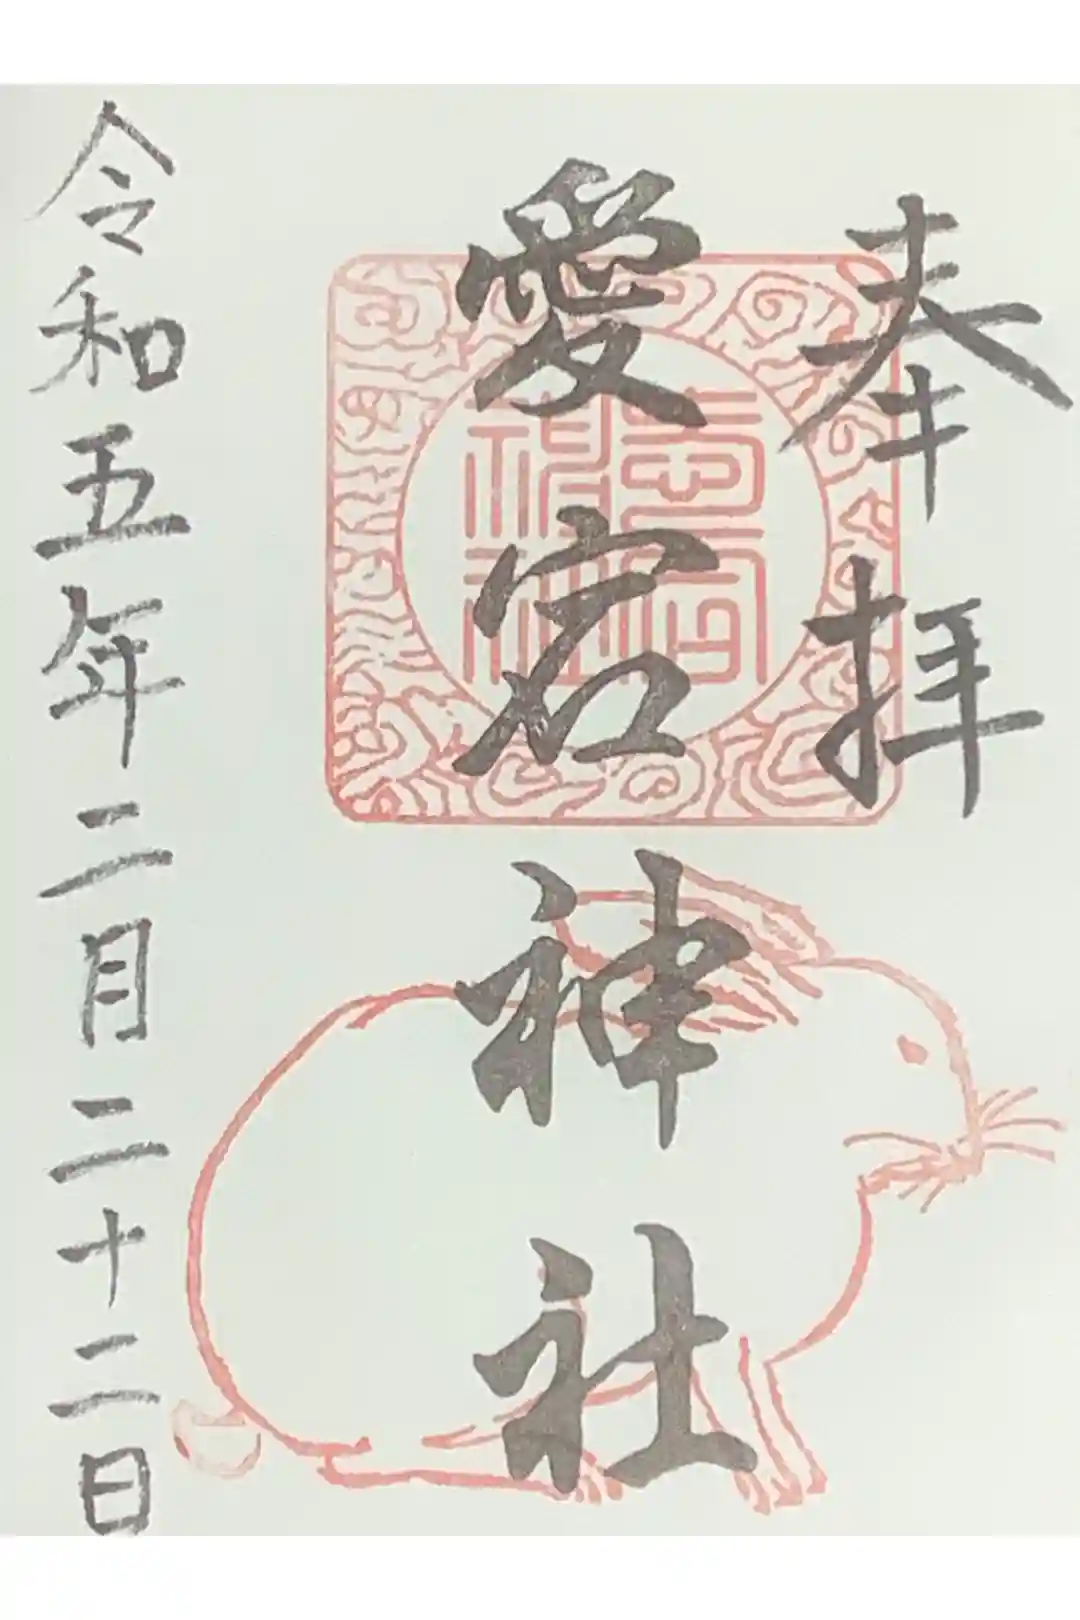 奉拝
愛宕神社
令和五年二月二十二日